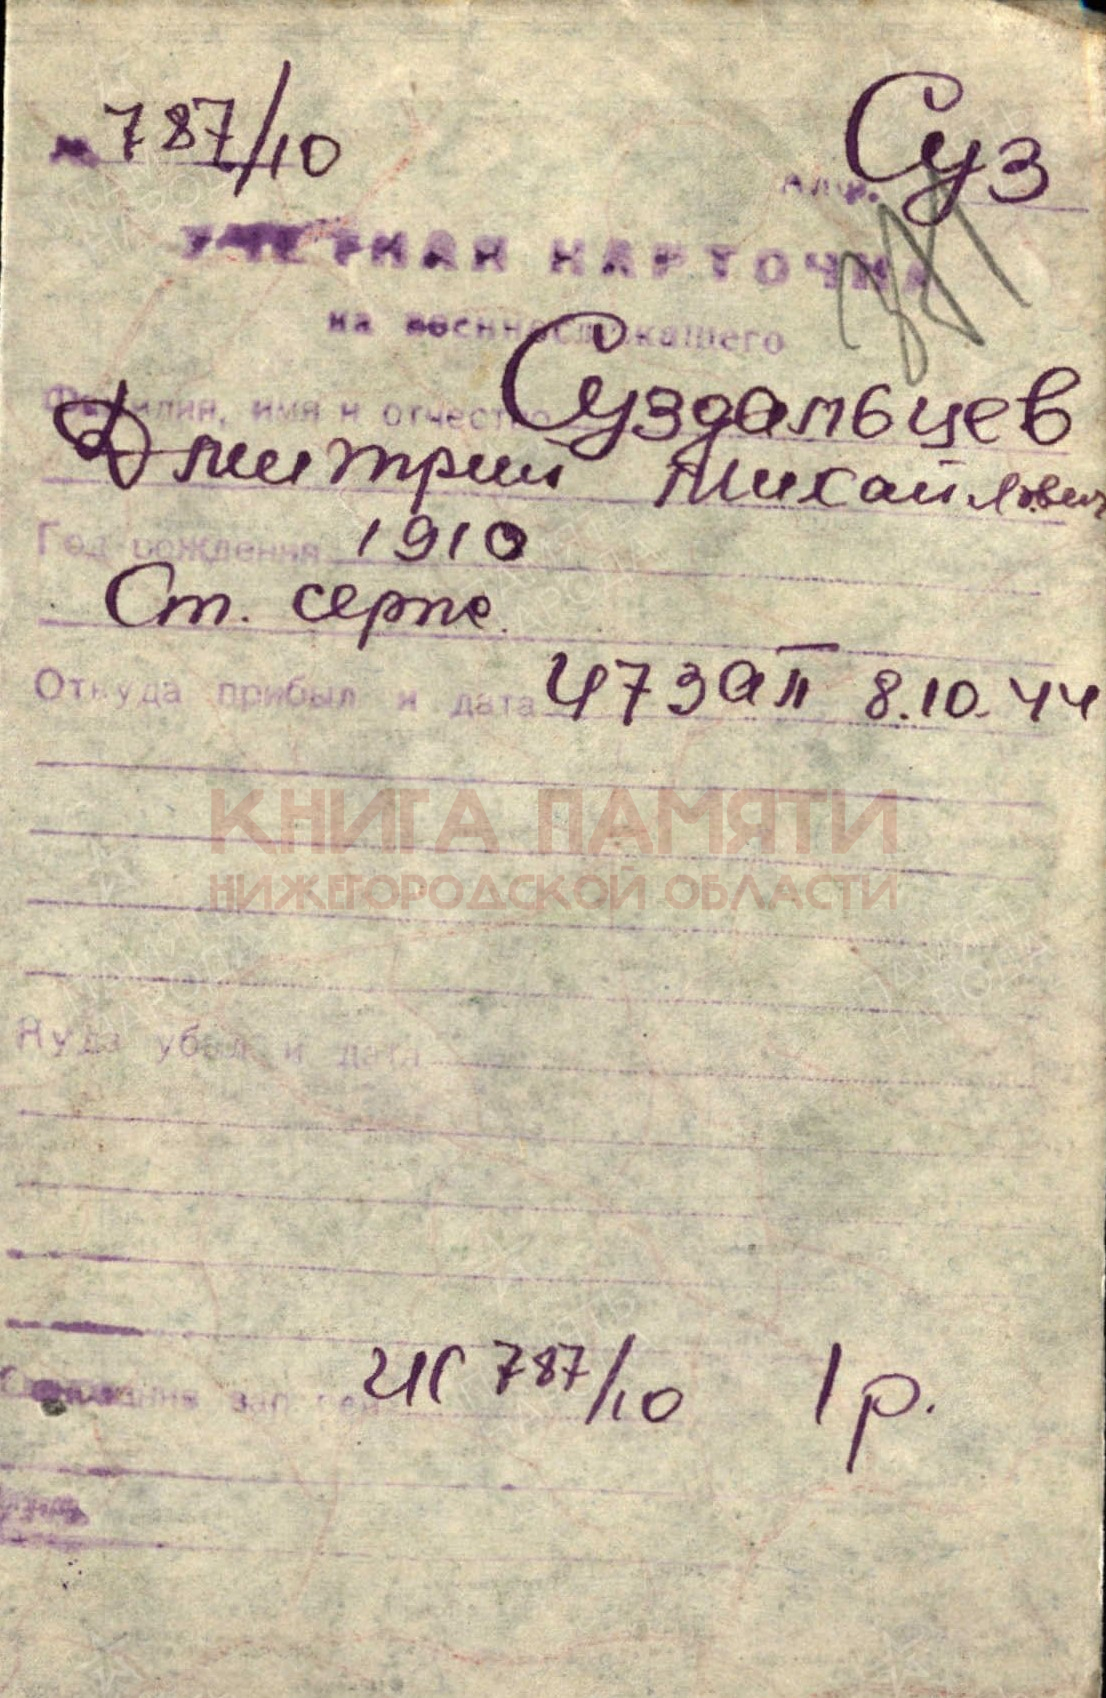 № 787/10
Алф. Суз
УЧЕТНАЯ КАРТОЧКА
на военнослужащего
Фамилия, имя и отчество Суздальцев
Дмитрий Михайлович
Год рождения 1910
Ст. серж.
Откуда прибыл и дата 473АП 8.10.44
КНИГА ПАМЯТИ
НИЖЕГОРОДСКОЙ ОБЛАСТИ
Куда убыл и дата
787/10 1 р.